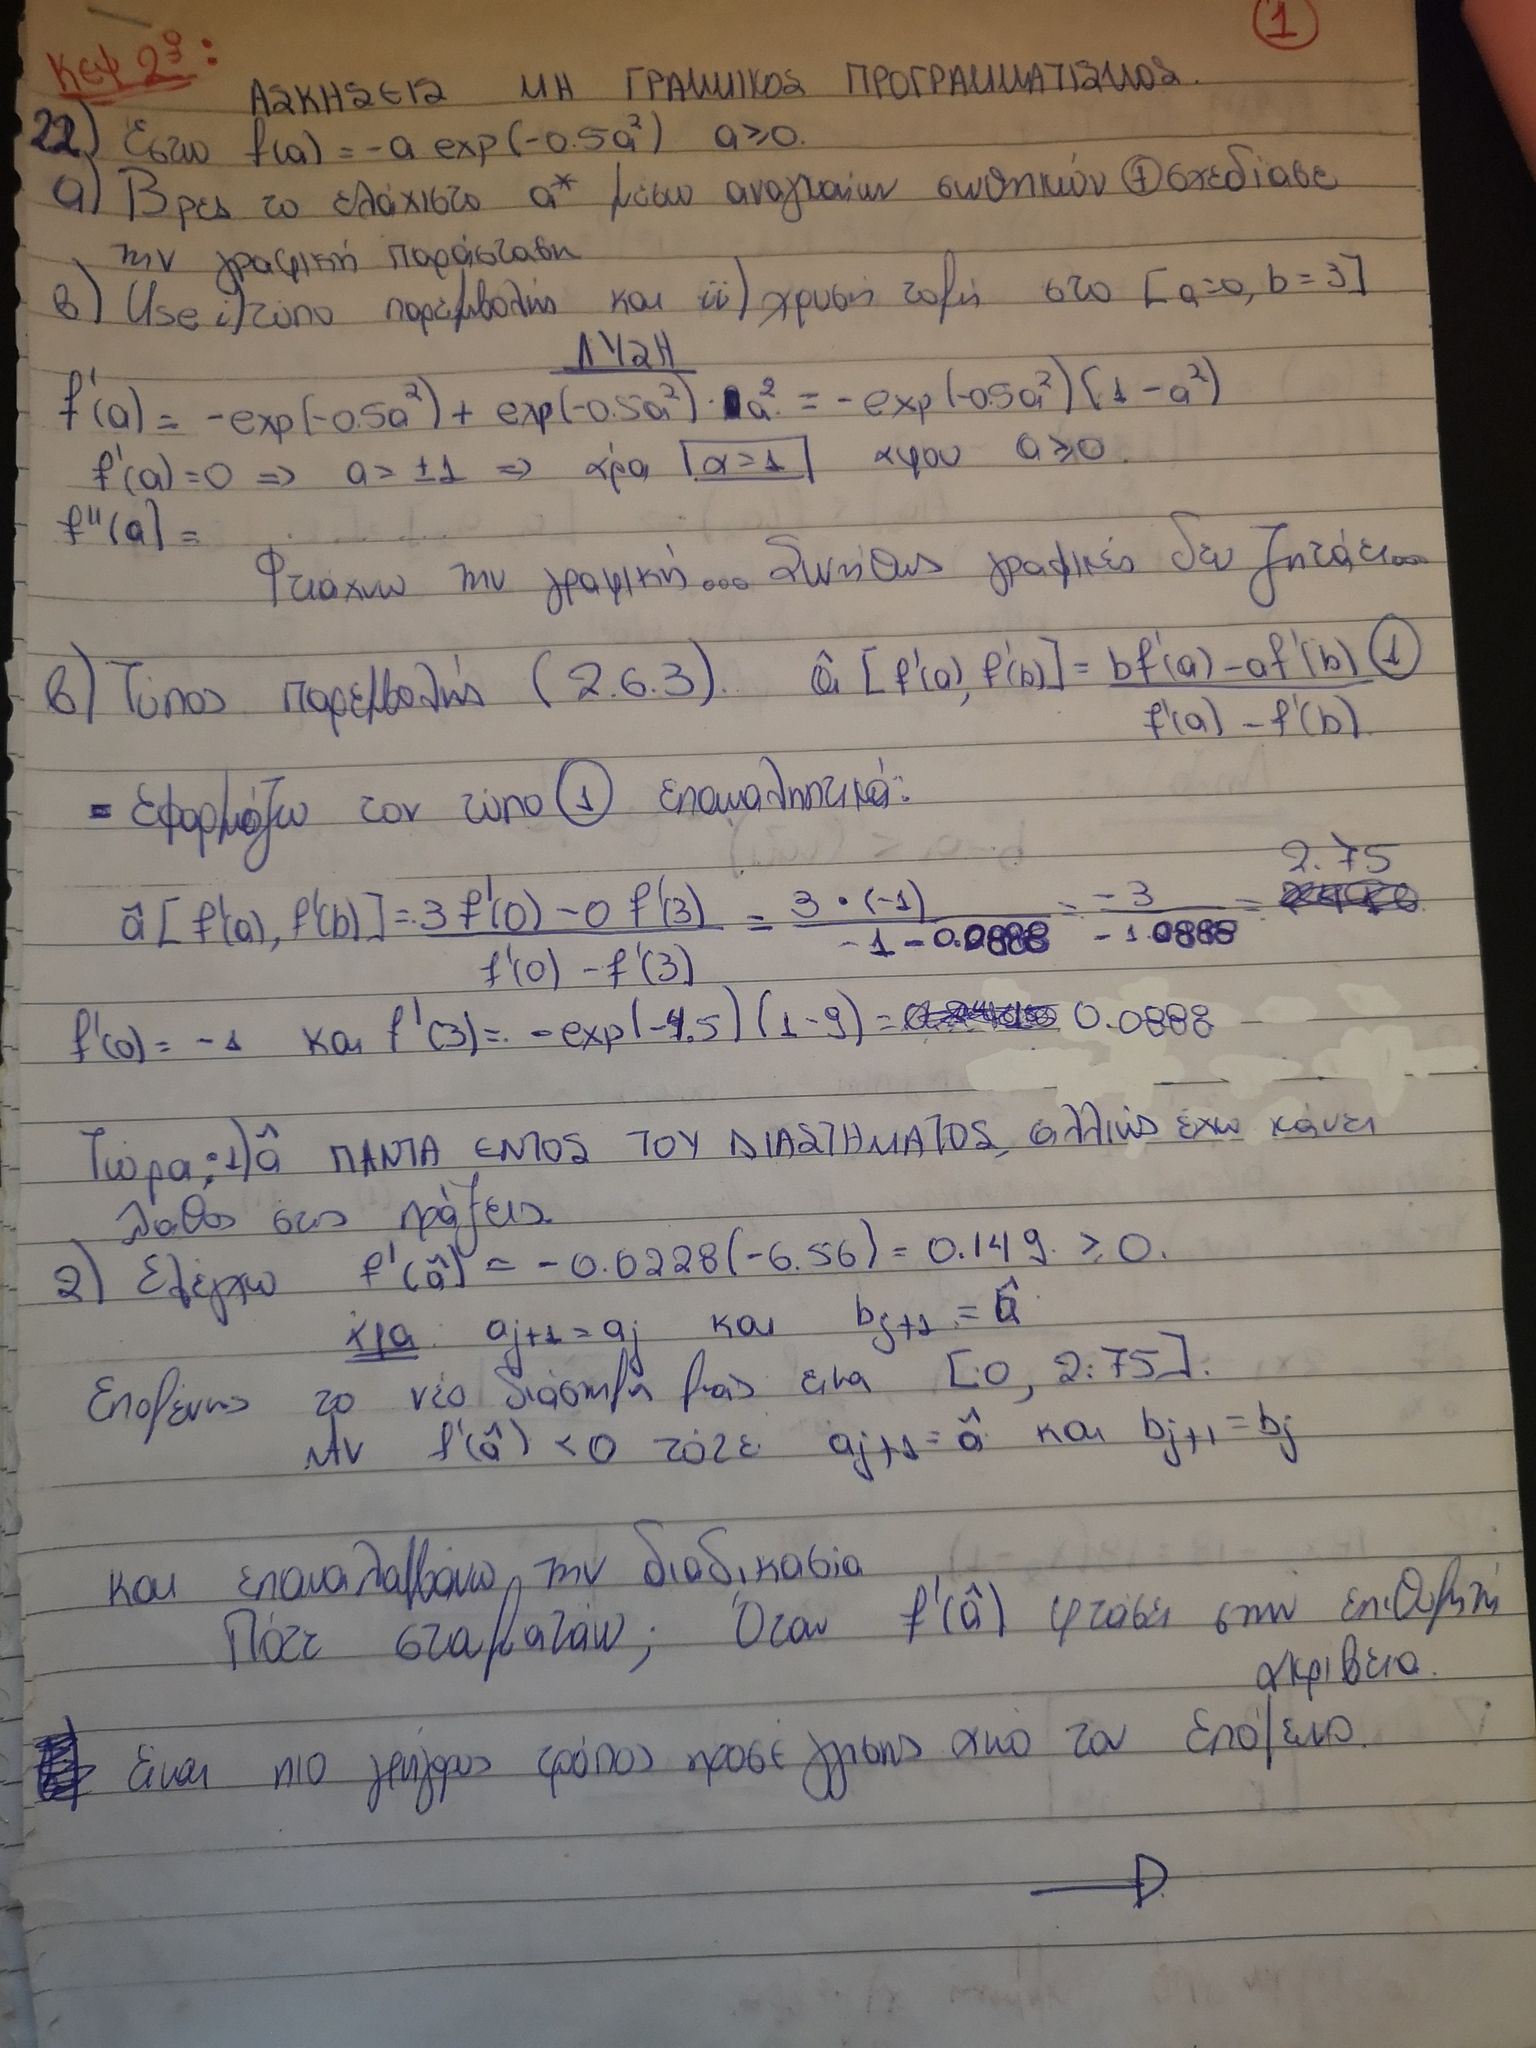 1
Κεφ 2º:
ΑΣΚΗΣΕΙΣ ΜΗ ΓΡΑΜΜΙΚΟΣ ΠΡΟΓΡΑΜΜΑΤΙΣΜΟΣ.
22) Έστω f(a) = -a exp(-0.5a²) a≥0.
a) Βρες το ελάχιστο a* μέσω αναγκαίων συνθηκών ⊕ σχεδίασε
την γραφική παράσταση
β) Use i) τύπο παρεμβολής και ii) χρυσή τομή στο [a=0, b=3]
ΛΥΣΗ
f'(a) = -exp(-0.5a²) + exp(-0.5a²)·a² = -exp(-0.5a²)(1-a²)
f'(a)=0 => a=±1 => άρα a=1 αφου a≥0.
f''(a) =
Φτιάχνω την γραφική... Συνήθως γραφικές δεν ζητάει...
β) Τύπος παρεμβολής (2.6.3). â[f'(a), f'(b)] = (bf'(a) - af'(b)) / (f'(a) - f'(b)) 1
= Εφαρμόζω τον τύπο 1 επαναληπτικά:
â[f'(a), f'(b)] = (3f'(0) - 0f'(3)) / (f'(0) - f'(3)) = 3·(-1) / (-1-0.0888) = -3 / -1.0888 = 2.75
f'(0) = -1 και f'(3) = -exp(-4.5)(1-9) = 0.0888
Τώρα: 1) â ΠΑΝΤΑ ΕΝΤΟΣ ΤΟΥ ΔΙΑΣΤΗΜΑΤΟΣ, αλλιώς έχω κάνει
λάθος στις πράξεις.
2) Ελέγχω f'(â) = -0.0228(-6.56) = 0.149 ≥ 0.
άρα aj+1 = aj και bj+1 = â
Επομένως το νέο διάστημα μας ειναι [0, 2.75].
Αν f'(â) < 0 τότε aj+1 = â και bj+1 = bj
και επαναλαμβάνω την διαδικασία
Πότε σταματάω; Όταν f'(â) φτάσει στην επιθυμητή
ακρίβεια.
Είναι πιο γρήγορος τρόπος προσέγγισης από τον επόμενο.